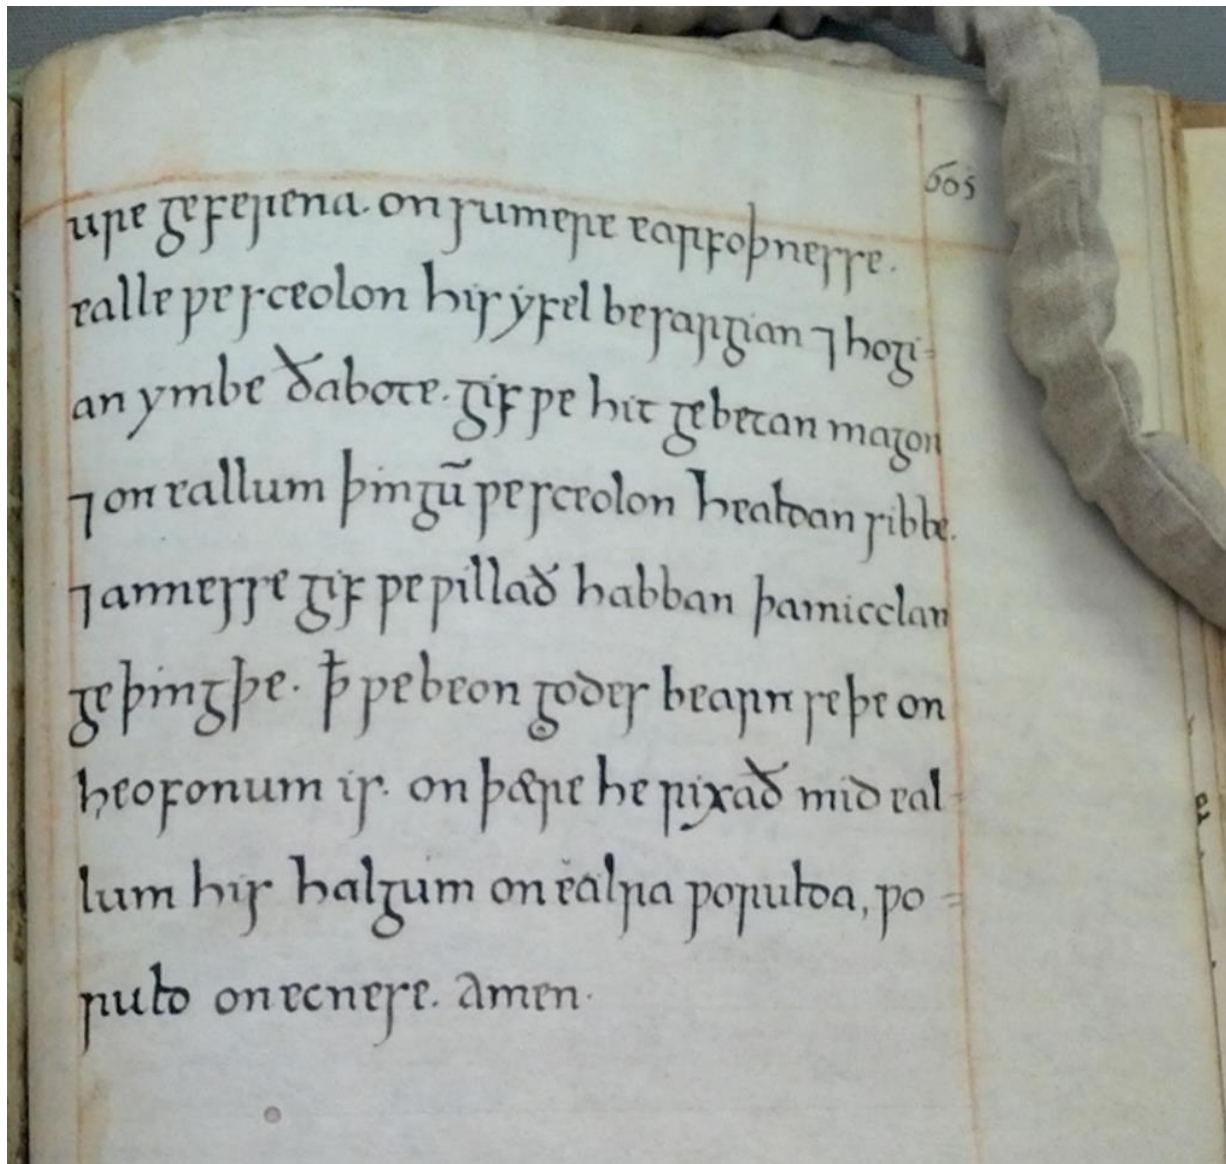 605
ure geferena. on sumere earfoþnesse.
ealle ƿe sceolon his ẏfel besargian ⁊ hogi=
an ymbe ðabote. gif ƿe hit gebetan magon
⁊ on eallum þingū ƿe sceolon healdan sibbe.
⁊ annesse gif ƿe ƿillað habban þamicclan
geþingþe. ꝥ ƿe beon godes bearn seþe on
heofonum is. on þære he rixað mid eal-
lum his halgum on ealra ƿorulda, ƿo=
ruld on ecnese. amen.